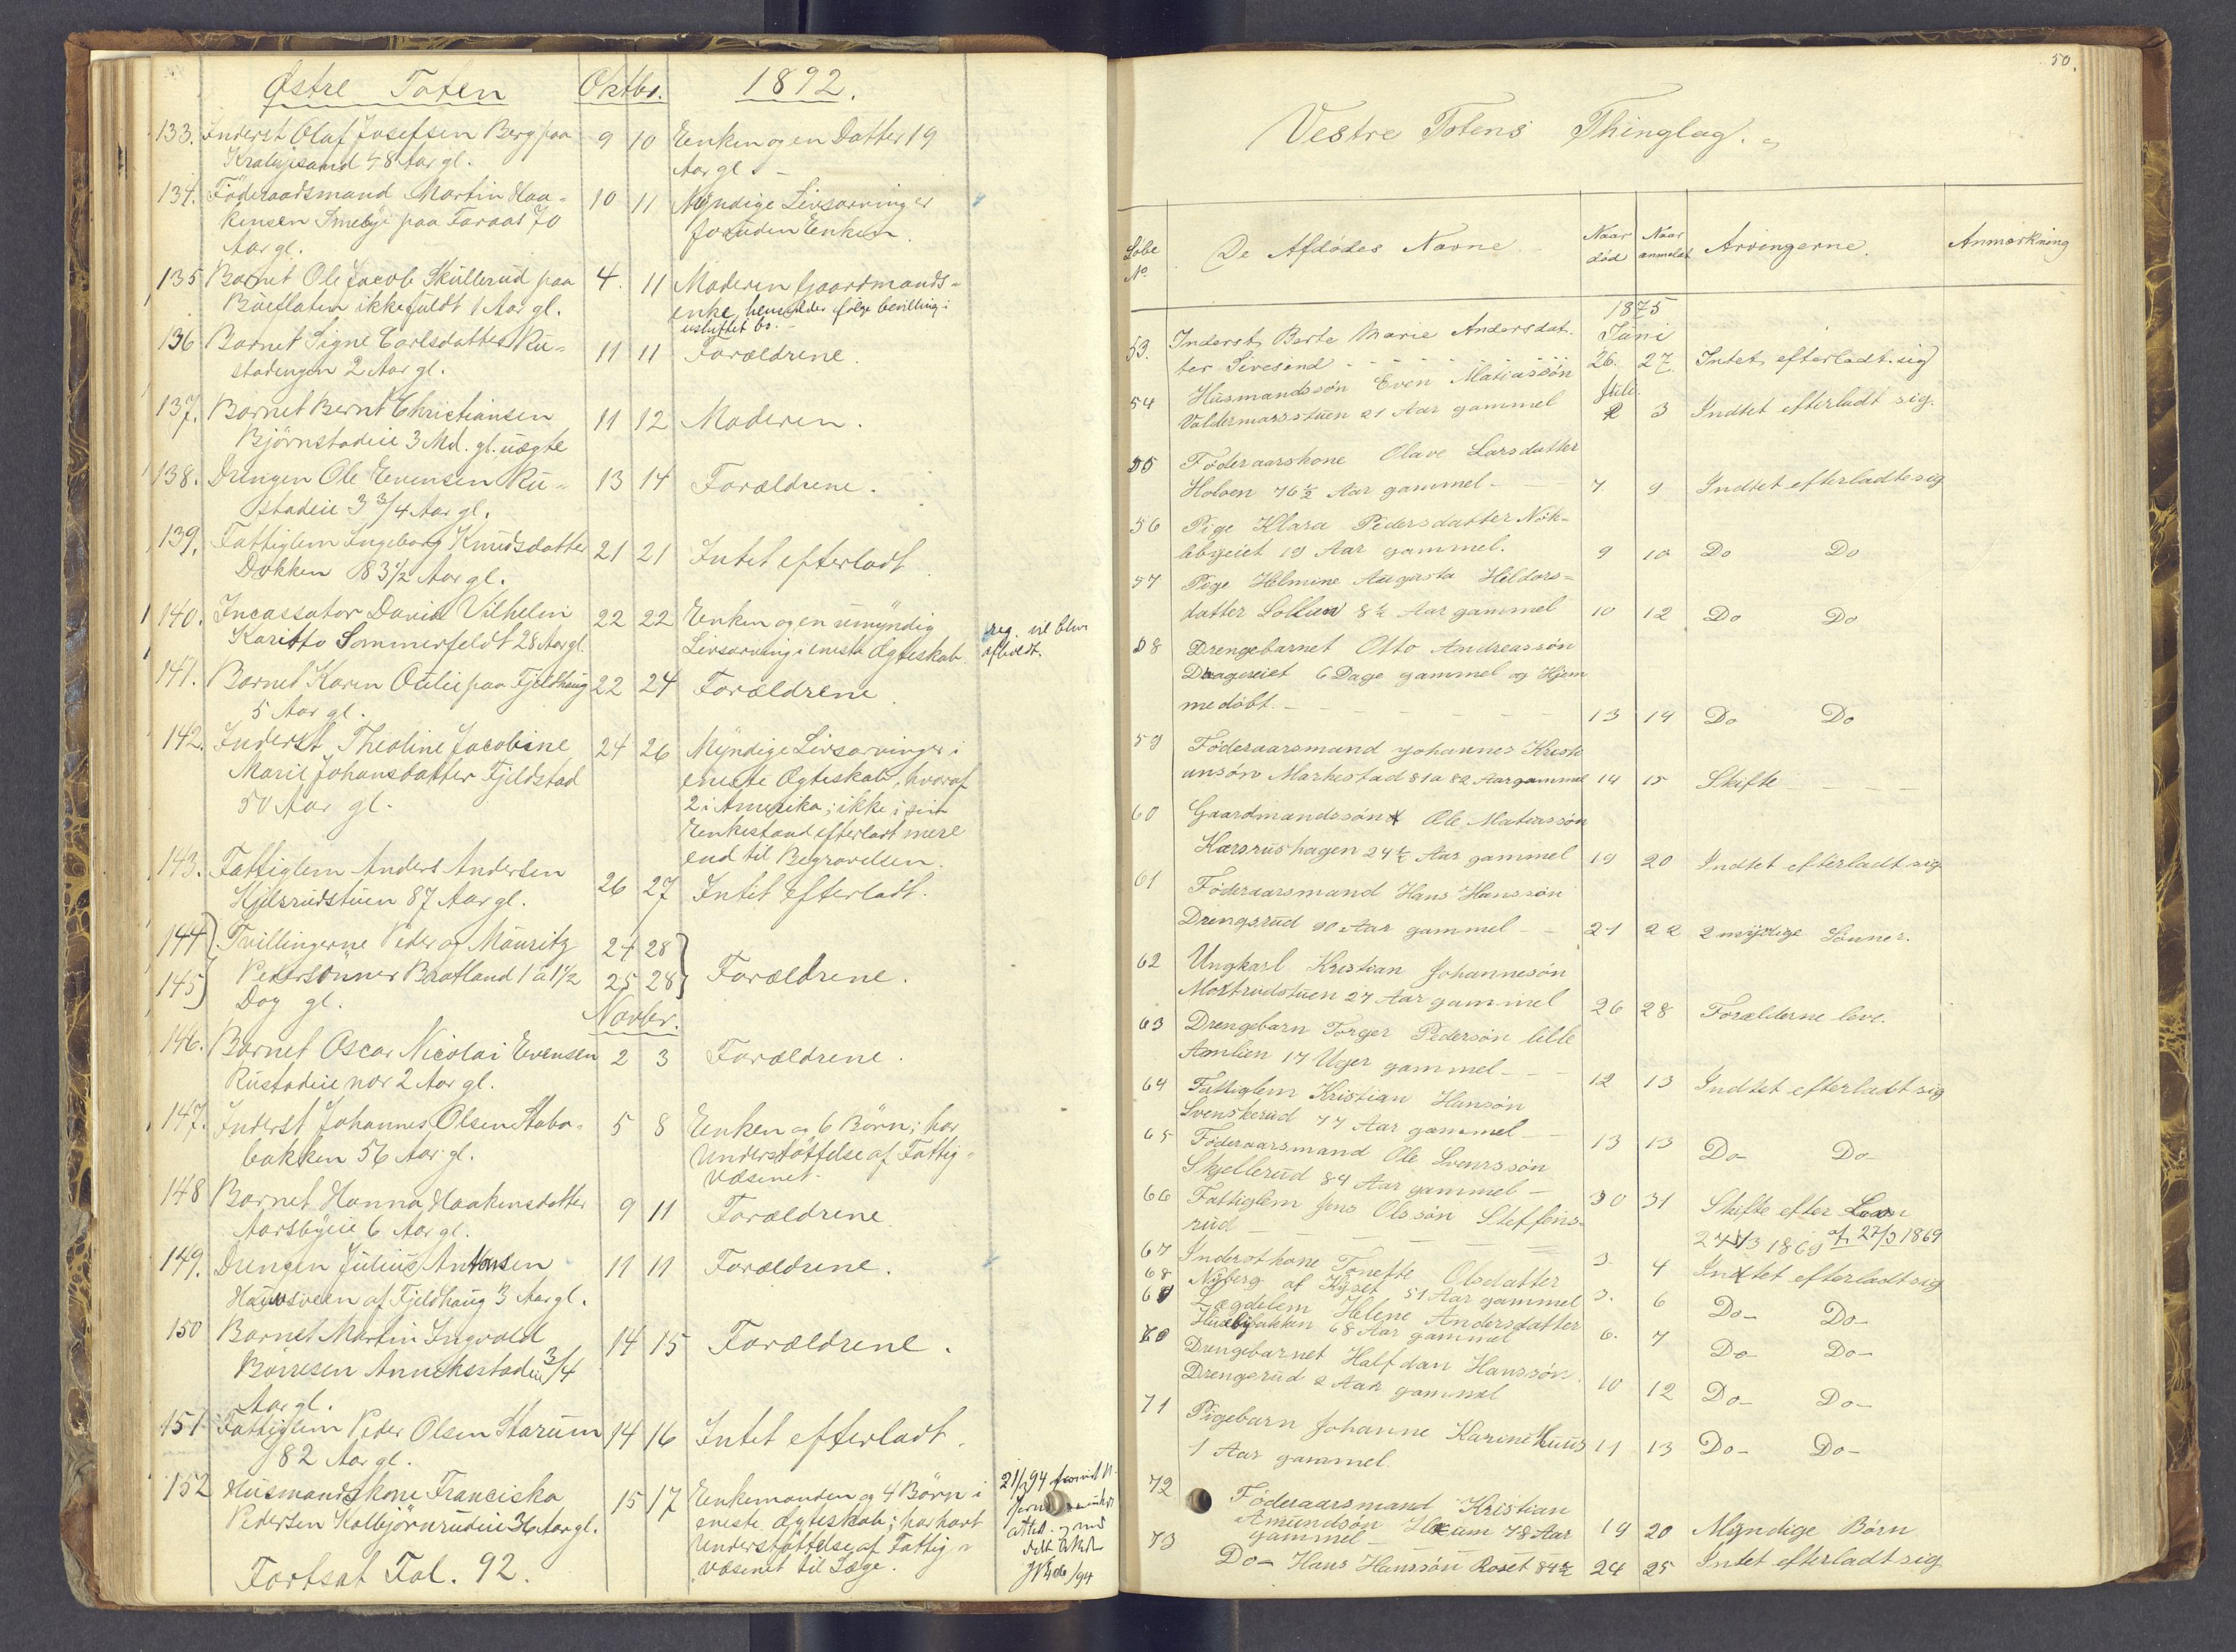 Østre Toten Oktbr. 1892.
133. Inderst Olaf Josefsen Berg paa 9 10 Enken og en Datter 19
48 Aar gl. Aar gl. -
134. Föderaadsmand Martin Haa- 10 11 Myndige Livsarvinger
kensen Smeby paa 70 foruden Enken
Aar gl.
135 Barnet Ole Jacob Skullerud paa 4. 11 Moderen Gaardmands-
ikke fuldt 1 Aar gl. enke, hensidder ifølge bevilling i
uskiftet bo.
136 Barnet Signe Carlsdatter Ru- 11 11 Forældrene.
stadengen 2 Aar gl.
137. Barnet Bernt Christiansen 11 12 Moderen.
Björnstadeie 3 Md. gl. uægte
138. Drengen Ole Evensen Ru- 13 14 Forældrene.
stadeie 3 3/4 Aar gl.
139. Fattiglem Ingeborg Knudsdatter 21 21 Intet efterladt
Dokken 83 1/2 Aar gl.
140. Incassator David Vilhelm 22 22 Enken og en umyndig
Sommerfeldt 28 Aar gl. Livsarving i eneste Ægteskab.
141. Barnet Karen Oulie paa Fjeldhaug 22 24 Forældrene.
5 Aar gl.
142. Inderst Theoline Jacobine 24 26 Myndige Livsarvinger i
Marie Johansdatter Fjeldstad eneste Ægteskab, hvoraf
50 Aar gl. 2 i Amerika; ikke i sin
Enkestand efterladt mere
end til Begravelsen.
143. Fattiglem Anders Andersen 26 27 Intet efterladt.
Hjelsrudstuen 87 Aar gl.
144 Tvillingerne Peder og Mauritz 24 28
145 Pedersönner Bratland 1 a 1 1/2 25 28 Forældrene.
Dag gl.
Novbr.
146. Barnet Oscar Nicolai Evensen 2 3 Forældrene.
Rustadeie nær 2 Aar gl.
147. Inderst Johannes Olsen Stabo- 5 8 Enken og 6 Börn; har
bakken 56 Aar gl. Understöttelse af Fattig-
væsenet.
148 Barnet Hanna Haakensdatter 9 11 Forældrene
Aarsbyeie 6 Aar gl.
149. Drengen Julius Antonsen 11 11 Forældrene.
af Fjeldhaug 3 Aar gl.
150 Barnet Martin Ingvald 14 15 Forældrene.
Börresen Annekstadeie 3/4
Aar gl.
151 Fattiglem Peder Olsen Starum 14 16 Intet efterladt.
82 Aar gl.
152 Husmandskone Franciska 15 17 Enkemanden og 4 Börn i
Pedersen Kolbjörnrudeie 36 Aar gl. eneste Ægteskab; har havt
Understöttelse af Fattig-
væsenet til Læge.
21/3 94
Fortsat Fol. 92.
50.
Vestre Totens Thinglag.
Löbe No. De Afdödes Navne. Naar död Naar anmeldt Arvingerne. Anmærkning
1875
53. Inderst Berte Marie Andersdat- Juni
ter Sivesind - - - 26. 27. Intet efterladt sig
54 Husmandssön Even Matiassön Juli.
Valdemarsstuen 21 Aar gammel 2 3 Indtet efterladt sig.
55 Föderaarskone Olave Larsdatter
Holven 76 1/2 Aar gammel - 7 9 Indtet efterladte sig
56 Pige Klara Pedersdatter Nök-
lebyeiet 19 Aar gammel. 9 10 Do Do
57 Pige Helmine Augusta Hildors-
datter 8 1/2 Aar gammel 10 12 Do Do
58 Drengebarnet Otto Andreassön
6 Dage gammel og Hjem
medöbt. - - - 13 14 Do Do
59 Föderaarsmand Johannes Kristi
ansön Markestad 81 a 82 Aar gammel 14 15 Skifte - - -
60 Gaardmandssön Ole Matiassön
Karsrushagen 24 1/2 Aar gammel 19 20 Indtet efterladt sig
61 Föderaarsmand Hans Hanssön
Drengsrud 90 Aar gammel - - 21 22 2 myndige Sönner.
62 Ungkarl Kristian Johannesön
27 Aar gammel 26 28 Forælderne leve.
63 Drengebarn Torger Pedersön lille
Amlien 17 Uger gammel - - 12 13 Indtet efterladt sig
64 Fattiglem Kristian Hansön
Svenskerud 77 Aar gammel - - 13 13 Do- Do-
65 Föderaarsmand Ole Svenssön
Skjellerud 84 Aar gammel - 30 31 Skifte efter
af 27/3 1869
66 Fattiglem Jens Olssön Steffens-
rud - - - 3. 4 Indtet efterladt sig
67 Inderstkone Tonette Olsdatter
68 Nyberg af Kyset 51 Aar gammel 3. 6 Do- Do-
69 Lægdelem Helene Andersdatter
Husebybakken 68 Aar gammel 6. 7 Do- Do-
70 Drengebarnet Halfdan Hanssön.
Drengsrud 2 Aar gammel 10 12 Do- Do-
71 Pigebarn Johanne Karine Huus 11 13 Do- Do-
1 Aar gammel.
72 Föderaarsmand Kristian
Amundsön 78 Aar 19 20 Myndige Börn
gammel -
73 Do- Hans Hanssön Roset 84 1/2 24 25 Intet efterladt sig